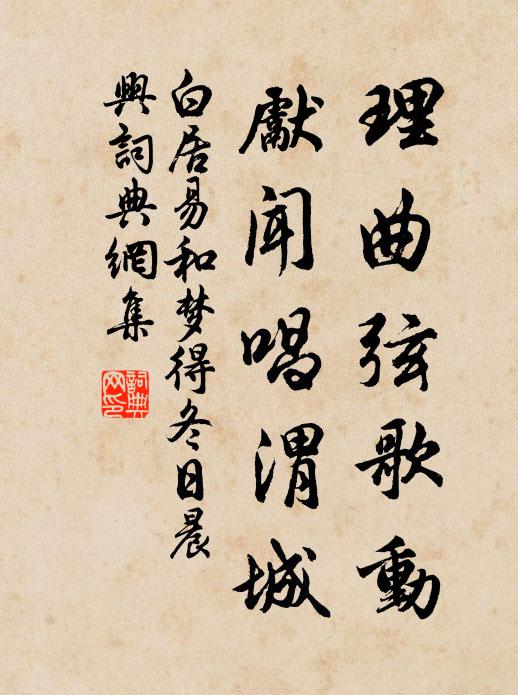 理曲弦歌動
獻聞唱渭城
白居易和梦得冬日晨
興詞典網集
詞典
网印